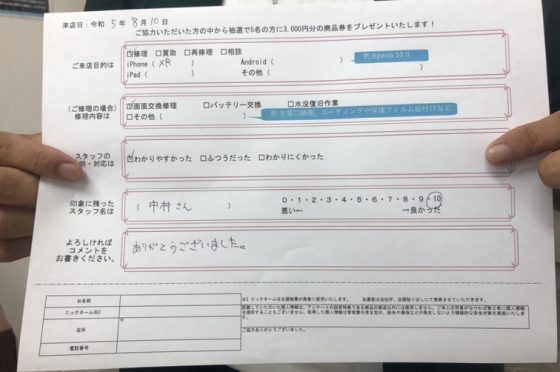 来店日：令和 5年 8月 10日
ご協力いただいた方の中から抽選で5名の方に3,000円分の商品券をプレゼントいたします！
ご来店目的は
☑修理 □買取 □再修理 □相談
iPhone ( XR ) Android ( )
iPad ( ) その他 ( )
例:Xperia 10 II
(ご修理の場合)
修理内容は
☑画面交換修理 □バッテリー交換 □水没復旧作業
□その他 ( )
例:充電口修理、コーティングや保護フィルム貼付けなど
スタッフの
説明・対応は
☑わかりやすかった □ふつうだった □わかりにくかった
印象に残った
スタッフ名は
( 中村さん )
0・1・2・3・4・5・6・7・8・9・10
悪い← →良かった
よろしければ
コメントを
お書きください。
ありがとうございました。
お名前
ニックネーム※1
住所
〒
電話番号
※1 ニックネームは当選結果の発表に使用いたします。
ご協力ありがとうございました。